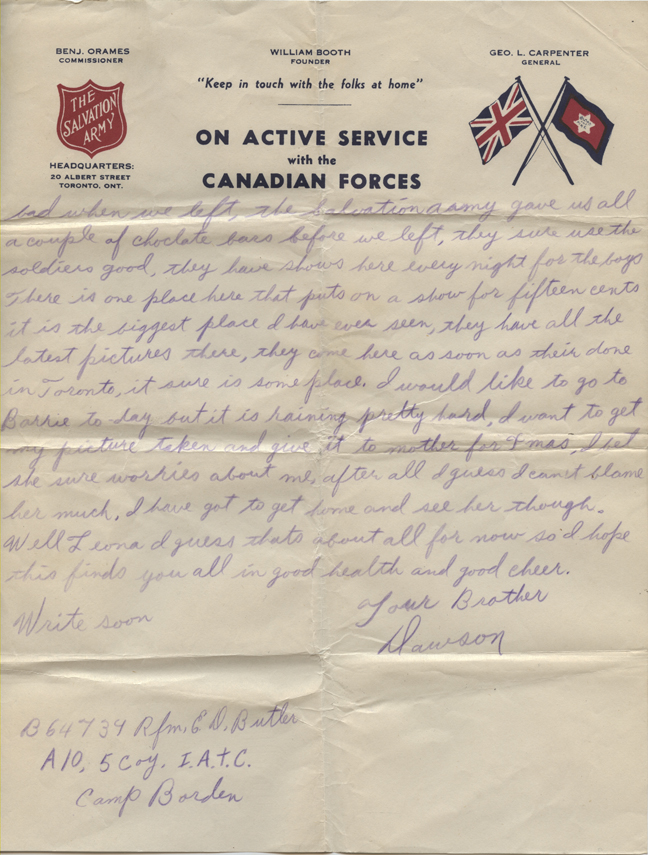 BENJ. ORAMES
COMMISSIONER
WILLIAM BOOTH
FOUNDER
GEO. L. CARPENTER
GENERAL
"Keep in touch with the folks at home"
THE
SALVATION
ARMY
ON ACTIVE SERVICE
with the
CANADIAN FORCES
HEADQUARTERS:
20 ALBERT STREET
TORONTO, ONT.
bad when we left, the Salvation army gave us all
a couple of choclate bars before we left, they sure use the
soldiers good, they have shows here every night for the boys
There is one place here that puts on a show for fifteen cents
it is the biggest place I have ever seen, they have all the
latest pictures there, they come here as soon as their done
in Toronto, it sure is some place. I would like to go to
Barrie to-day but it is raining pretty hard, I want to get
my picture taken and give it to mother for Xmas, I bet
she sure worries about me, after all I guess I can't blame
her much, I have got to get home and see her though.
Well Leona I guess thats about all for now so I'd hope
this finds you all in good health and good cheer.
Your Brother
Write soon
Dawson
B64739 Rfm. E D. Butler
A10, 5 Coy. I.A.T.C.
Camp Borden